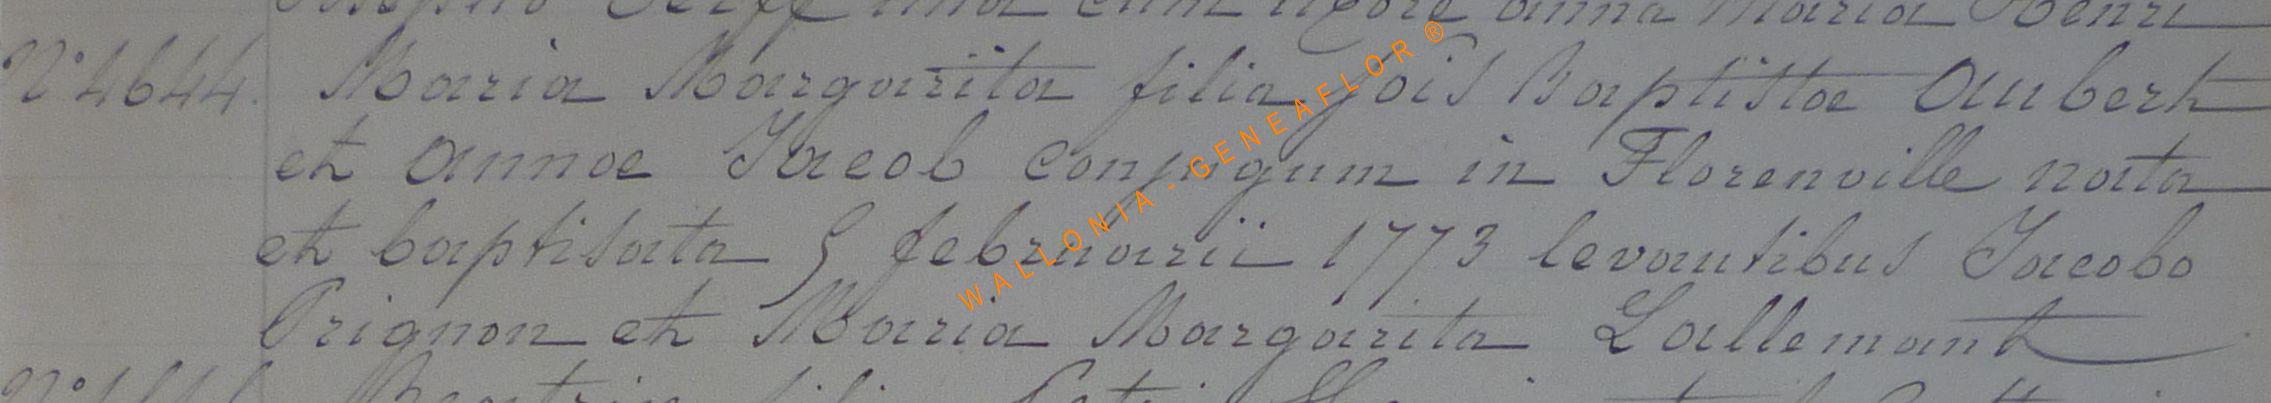 cum uxore anna Maria Henri
N° 4644. Maria Margarita filia Jois Baptistae Aubert
et Annae Jacob conjugum in Florenville nata
et baptisata 5 februarii 1773 levantibus Jacobo
Prignon et Maria Margarita Lallemant
WALLONIA - GENEAFLOR ®